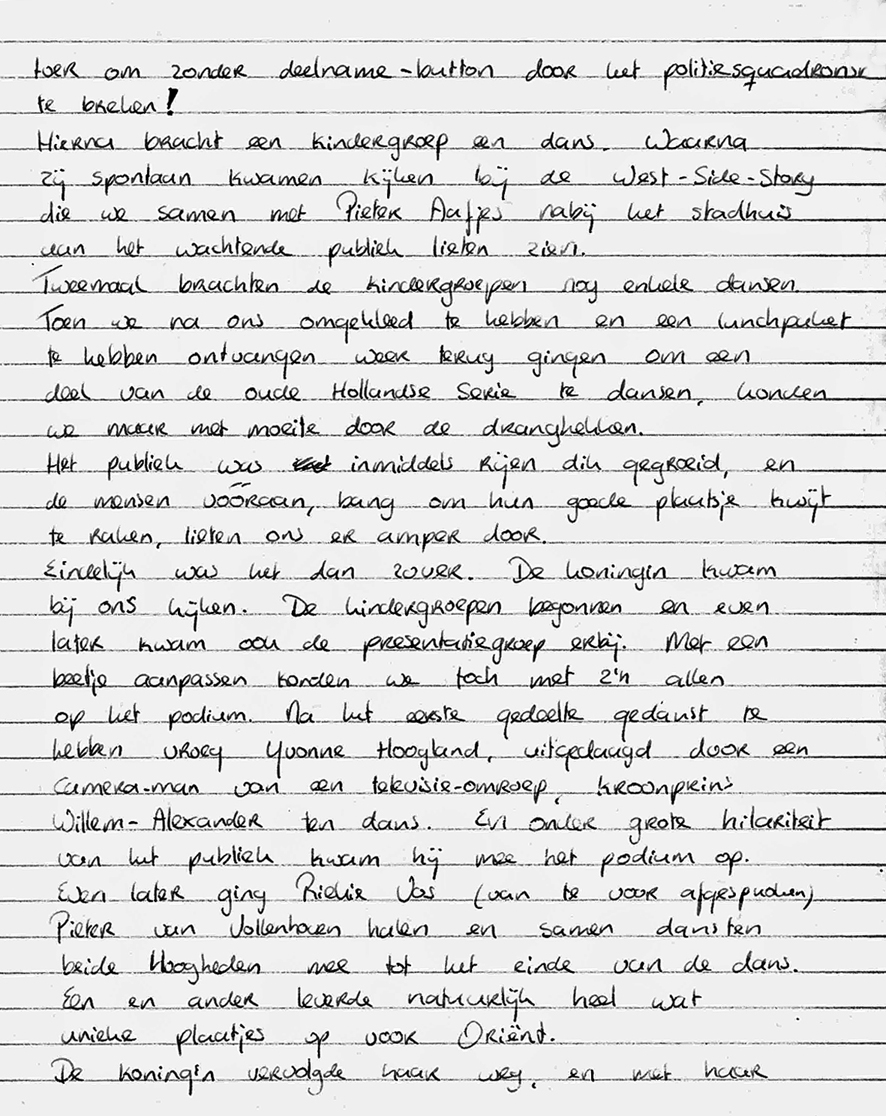 toer om zonder deelname-button door het politiesquadrons
te breken!
Hierna bracht een kindergroep een dans. Waarna
zij spontaan kwamen kijken bij de West-Side-Story
die we samen met Pieter Aafjes nabij het stadhuis
aan het wachtende publiek lieten zien.
Tweemaal brachten de kindergroepen nog enkele dansen.
Toen we na ons omgekleed te hebben en een lunchpaket
te hebben ontvangen weer terug gingen om een
deel van de oude Hollandse Serie te dansen, konden
we maar met moeite door de dranghekken.
Het publiek was inmiddels rijen dik gegroeid, en
de mensen vóóraan, bang om hun goede plaatsje kwijt
te raken, lieten ons er amper door.
Eindelijk was het dan zover. De koningin kwam
bij ons kijken. De kindergroepen begonnen en even
later kwam ook de presentatiegroep erbij. Met een
beetje aanpassen konden we toch met z'n allen
op het podium. Na het eerste gedeelte gedanst te
hebben vroeg Yvonne Hoogland, uitgedaagd door een
camera-man van een televisie-omroep, kroonprins
Willem-Alexander ten dans. En onder grote hilariteit
van het publiek kwam hij mee het podium op.
Even later ging Riekie Vos (van te voor afgesproken)
Pieter van Vollenhoven halen en samen dansten
beide Hoogheden mee tot het einde van de dans.
Een en ander leverde natuurlijk heel wat
unieke plaatjes op voor Oriënt.
De koningin vervolgde haar weg, en met haar